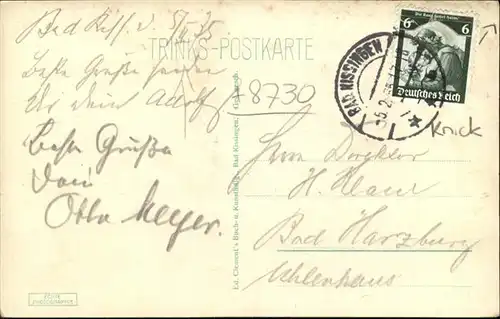 Bad Kiss. d. 5/II 35
TRINKS-POSTKARTE
Beste Grüße senden
Dir dein Adolf
8730
Beste Grüße
Dein
Otto Meyer.
Ed. Clement's Buch- u. Kunsthdlg., Bad Kissingen,
BAD KISSINGEN
6 6
Deutsches Reich
Knick
Herrn Direktor
H. Klaue
Bad Harzburg
Uhlenhaus